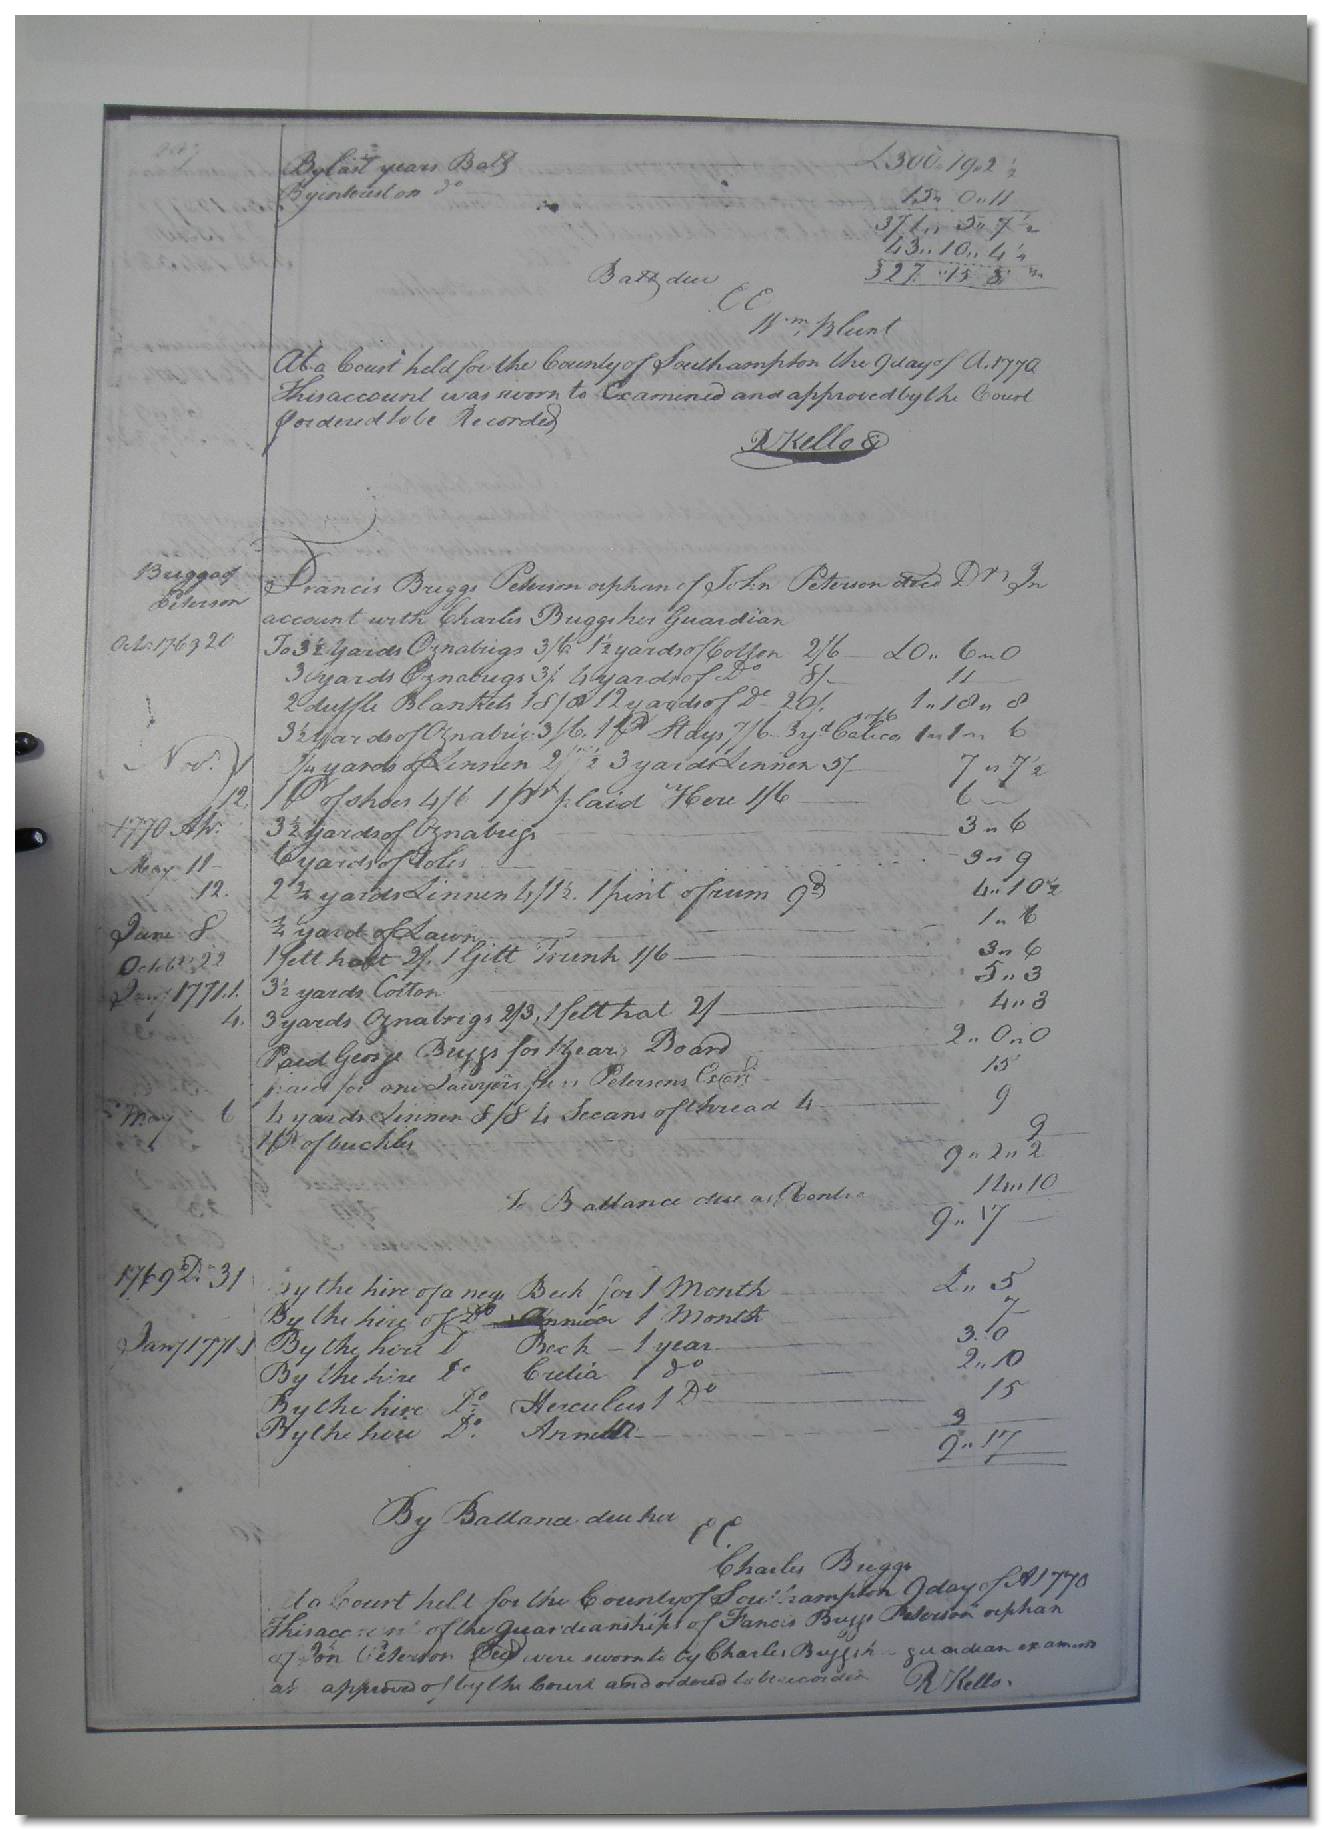 By last years Ball £300,,19,,2½
By interest on do 15,, 0,,11
371,, 5,,7½
43,,10,,4½
Ball due 327,,15,,3
EE
Wm. Blunt
At a Court held for the County of Southampton the 9 day of A. 1770
This account was sworn to Examined and approved by the Court
& ordered to be Recorded
R Kello
Briggs of
Peterson
Francis Briggs Peterson orphan of John Peterson Dr In
account with Charles Briggs her Guardian
Oct. 1769 20 To 3½ Yards Oznabrigs 3/6 1½ yards of Cotton 2/6 £0,, 6,,0
3 yards Oznabrigs 3/ 4 yards of Do 8/ 11
2 duffle Blankets 18/8 12 yards of Do 20/ 1,,18,,8
3½ yards of Oznabrig 3/6. 1 pr Stays 7/6 3 yd Calico 1,,1,, 6
Nov. yards of Linnen 3 yards Linnen 5/ 7,,7½
12. 1 pr of shoes 4/6 1 pr plaid Hose 1/6 6
1770 Ap. 3½ yards of Oznabrigs 3,,6
May 11 6 yards of 3,,9
12. 2¾ yards Linnen 4/1½. 1 pint of rum 9d 4,,10½
June 8 ¾ yard of Lawn 1,,6
October 22 1 felt hatt 2/. 1 Gilt Trunk 1/6 3,,6
Jany 1771.1. 3½ yards Cotton 5,,3
4. 3 yards Oznabrigs 2/3, 1 felt hat 2/ 4,,3
Paid George Briggs for 1 year Board 2,,0,,0
paid for one Lawyers fee Petersons Exors 15
May 6 4 yards Linnen 8/8 4 Secans of thread 4 9
1 pr of buckles 9
9,,2,,2
To Ballance due as Contra 14,,10
9,,17
1769 D. 31 By the hire of a neg Beck for 1 Month £,,5
By the hire of Do Annica 1 Month 7
Jany 1771.1 By the hire D Beck – 1 year 3.0
By the hire do Credia 1 do 2,,10
By the hire Do Herculus 1 Do 15
By the hire Do. 3
9,,17
By Ballance due her EE
Charles Briggs
At a Court held for the County of Southampton 9 day of A 1770
This account of the guardianship of Fancis Briggs Peterson orphan
of Jon Peterson Decd were sworn to by Charles Briggs guardian examind
as approved of by the Court and ordered to be recorded R Kello.